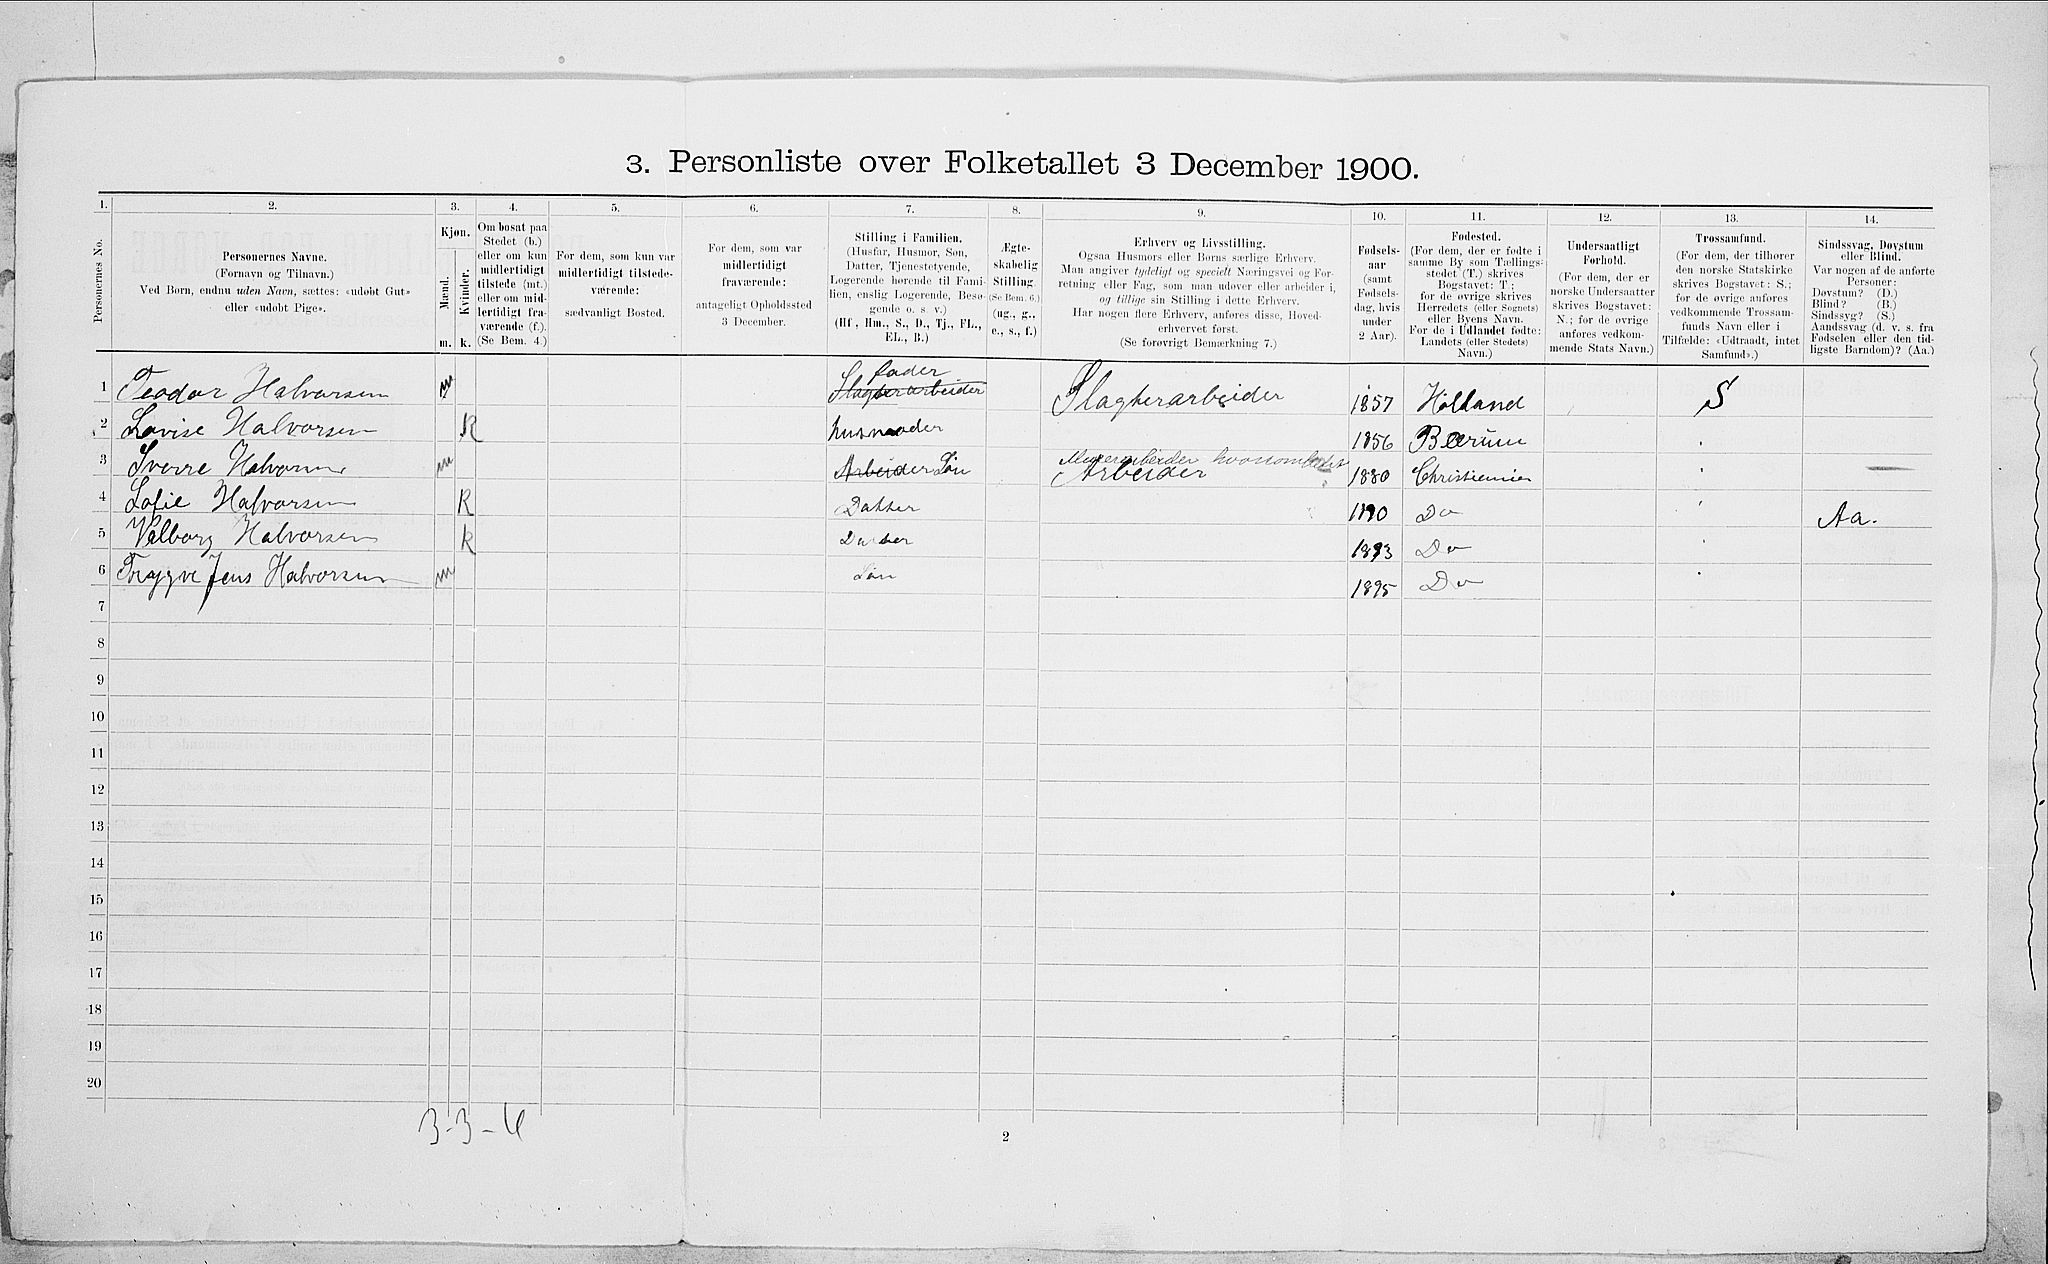 3. Personliste over Folketallet 3 December 1900.
1. 2. 3. 4. 5. 6. 7. 8. 9. 10. 11. 12. 13. 14.
Personernes No.
Personernes Navne.
(Fornavn og Tilnavn.)
Ved Børn, endnu uden Navn, sættes: «udøbt Gut»
eller «udøbt Pige».
Kjøn.
Mænd.
m.
Kvinder.
k.
Om bosat paa
Stedet (b.)
eller om kun
midlertidigt
tilstede (mt.)
eller om mid-
lertidigt fra-
værende (f.).
(Se Bem. 4.)
For dem, som kun var
midlertidigt tilstede-
værende:
sædvanligt Bosted.
For dem, som var
midlertidigt
fraværende:
antageligt Opholdssted
3 December.
Stilling i Familien.
(Husfar, Husmor, Søn,
Datter, Tjenestetyende,
Logerende hørende til Fami-
lien, enslig Logerende, Besø-
gende o. s. v.)
(Hf , Hm., S., D., Tj., FL.,
EL., B.)
Ægte-
skabelig
Stilling.
(Se Bem. 6.)
(ug., g.,
e., s., f.)
Erhverv og Livsstilling.
Ogsaa Husmors eller Børns særlige Erhverv.
Man angiver tydeligt og specielt Næringsvei og For-
retning eller Fag, som man udøver eller arbeider i,
og tillige sin Stilling i dette Erhverv.
Har nogen flere Erhverv, anføres disse, Hoved-
erhvervet først.
(Se forøvrigt Bemærkning 7.)
Fødsels-
aar
(samt
Fødsels-
dag, hvis
under
2 Aar).
Fødested.
(For dem, der er fødte i
samme By som Tællings-
stedet (T.) skrives
Bogstavet: T.;
for de øvrige skrives
Herredets (eller Sognets)
eller Byens Navn.
For de i Udlandet fødte:
Landets (eller Stedets)
Navn.)
Undersaatligt
Forhold.
(For dem, der er
norske Undersaatter
skrives Bogstavet:
N.; for de øvrige
anføres vedkom-
mende Stats Navn.)
Trossamfund.
(For dem, der tilhører
den norske Statskirke
skrives Bogstavet: S.;
for de øvrige anføres
vedkommende Trossam-
funds Navn eller i
Tilfælde: «Udtraadt, intet
Samfund».)
Sindssvag, Døvstum
eller Blind.
Var nogen af de anførte
Personer:
Døvstum? (D.)
Blind? (B.)
Sindssyg? (S.)
Aandssvag (d. v. s. fra
Fødselen eller den tid-
ligste Barndom)? (Aa.)
1 Teodor Halvorsen m fader Slagterarbeider Slagterarbeider 1857 Holland S
2 Lovise Halvorsen K husmoder 1856 Bærum
3 Sverre Halvorsen m Arbeider Søn Arbeider 1880 Christiania
4 Sofie Halvorsen K Datter 1890 Do Aa.
5 Valborg Halvorsen k Datter 1893 Do
6 Trygve Jens Halvorsen m Søn 1895 Do
7
8
9
10
11
12
13
14
15
16
17
18
19
20
3-3-4
2